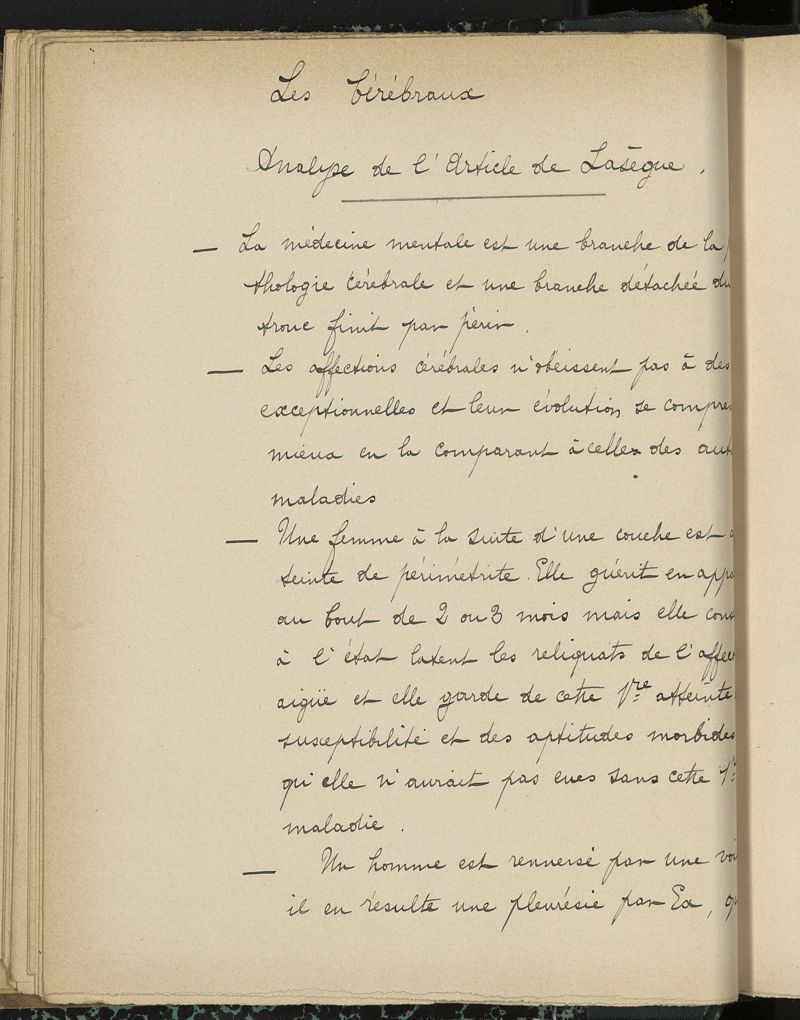 Les Cérébraux
Analyse de l'Article de Lasègue.
— La médecine mentale est une branche de la p
thologie cérébrale et une branche détachée du
tronc finit par périr.
— Les affections cérébrales n'obéissent pas à des
exceptionnelles et leur évolution se compren
mieux en la comparant à celles des aut
maladies
— Une femme à la suite d'une couche est a
teinte de périmétrite. Elle guérit en appa
au bout de 2 ou 3 mois mais elle cons
à l'état latent les reliquats de l'affec
aigüe et elle garde de cette 1re atteinte
susceptibilité et des aptitudes morbides
qu'elle n'aurait pas eues sans cette 1r
maladie.
— Un homme est renversé par une voi
il en résulte une pleurésie par Ex, q